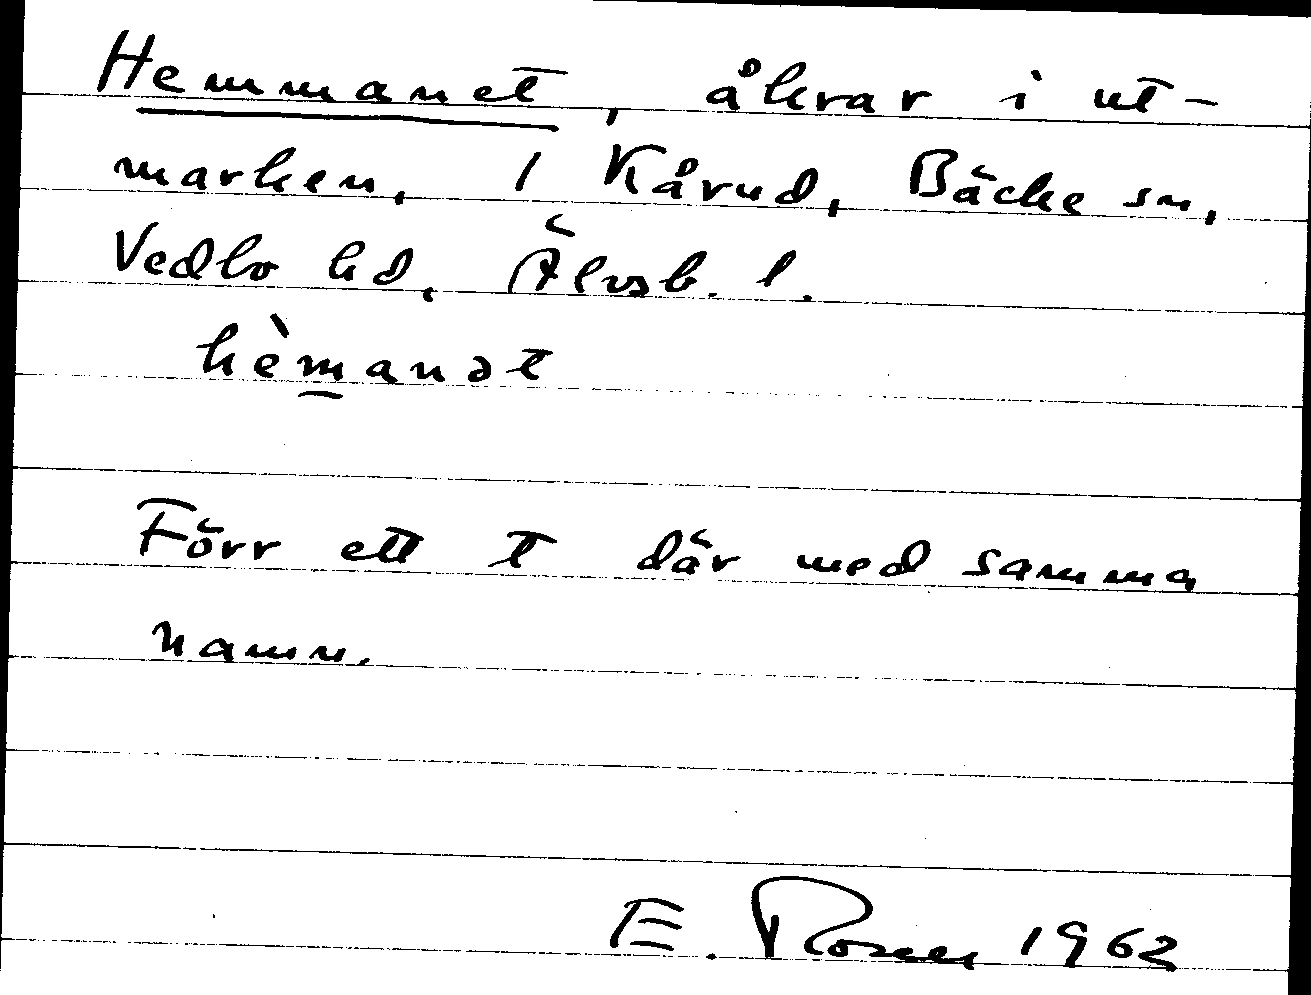 Hemmanet, åkrar i ut-
marken, 1 Kårud, Bäcke sn,
Vedbo hd, Älvsb. l.
hèmanət
Förr ett t där med samma
namn.
E. Rosell 1962